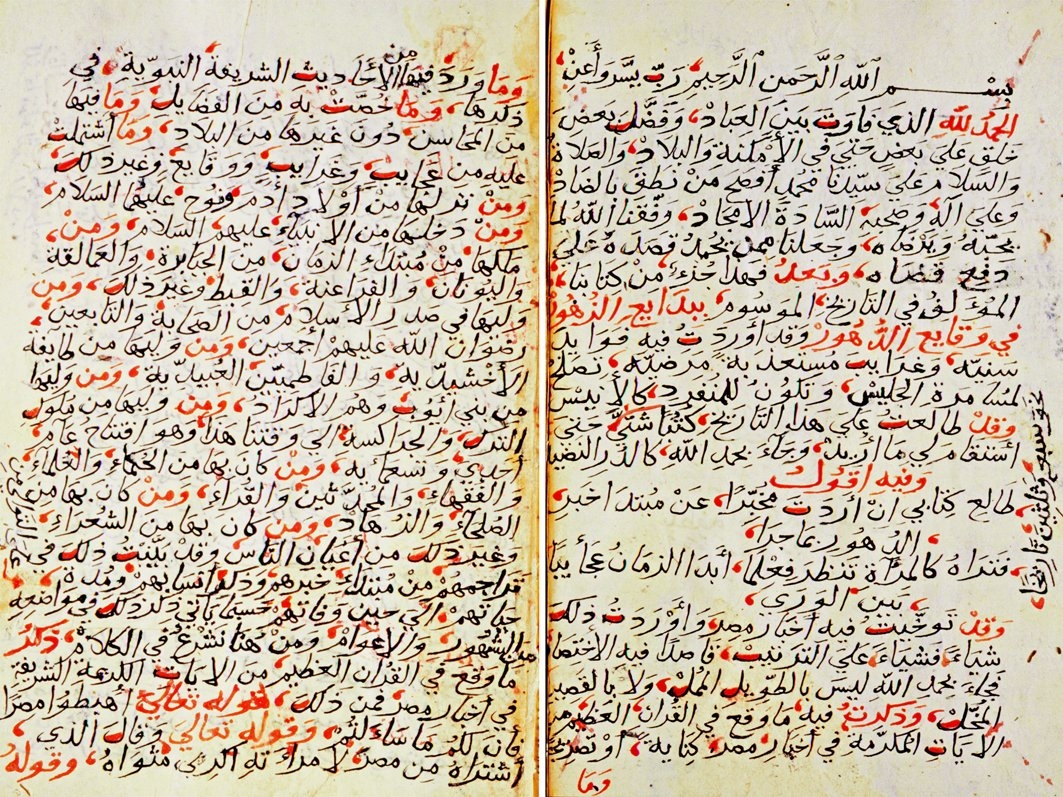 بسم الله الرحمن الرحيم رب يسر وأعن
الحمد لله الذي فاوت بين العباد، وفضل بعض
خلقه علي بعض حتي في الأمكنة والبلاد، والصلاة
والسلام علي سيدنا محمد أفصح من نطق بالضاد
وعلي آله وصحبه السادة الامجاد، وفقنا الله لما
يحبه ويرضاه، وجعلنا ممن يحمد قصده علي
دفع قضاه، وبعد فهذا جزء من كتابنا،
المؤلف في التاريخ، الموسوم ببدايع الزهور
في وقايع الدهور وقد أوردت فيه فوايد
سنيه، وغرايب مستعذبه مرضيه، تصلح
لمسامرة الجليس، وتكون للمنفرد كالأنيس
وقد طالعت علي هذا التاريخ كتبا شتي حتي
أستقام لي ما أريد، وجاء بحمد الله كالدر النضيد
وفيه اقول
طالع كتابي ان أردت مخبرا، عن مبتدا خبر
الدهور بما جرا،
فتراه كالمرآة تنظر فعلما، أبدا الزمان عجائبا
بين الورى،
وقد توخيت فيه أخبار مصر، وأوردت ذلك
شياء فشياء علي الترتيب، قاصدا فيه الاختصار
فجاء بحمد الله ليس بالطويل الممل، ولا بالقصير
المخل، وذكرت فيه ما وقع في القران العظيم من
الايات المكرمة في أخبار مصر، كناية، او تصريحا
وما
وما ورد فيها من الأحاديث الشريفة النبوية، في
ذكرها، وما خصت به من الفضايل، وما فيها
من المحاسن، دون غيرها من البلاد، وما اشتملت
عليه من عجايب وغرايب ووقايع وغير ذلك،
ومن نزلها من أولاد أدم ونوح عليهما السلام،
ومن دخلها من الانبياء عليهم السلام، ومن
ملكها من مبتداء الزمان، من الجبابرة، والعمالقة
واليونان، والفراعنة، والقبط وغير ذلك، ومن
وليها في صدر الأسلام، من الصحابة والتابعين،
رضوان الله عليهم أجمعين، ومن وليها من طايفة
الأخشيدية، والفاطميين العبيدية، ومن وليها
من بني أيوب وهم الاكراد، ومن وليها من ملوك
الترك، والجراكسة الي وقتنا هذا وهو افتتاح عام
أحدي وتسعمايه، ومن كان بها من الحكماء والعلماء،
والفقهاء، والمحدثين والقراء، ومن كان بها من
الصلحاء، والزهاد، ومن كان بها من الشعراء،
وغير ذلك من أعيان الناس وقد بينت ذلك في
تراجمهم من مبتداء خبرهم وذكر أنسابهم، ومدة،
حياتهم، الي حين وفاتهم، حسبما يأتي ذكر ذلك في مواضعه
من الشهور، والاعوام، ومن هنا نشرع في الكلام ذكر
ما وقع في القران العظيم من الايات الكريمة الشريفة
في أخبار مصر، فمن ذلك، قوله تعالي أهبطوا مصرا
فان لكم ما سالتم، وقوله تعالي وقال الذي
أشتراه من مصر لامراءته اكرمي مثواه، وقوله